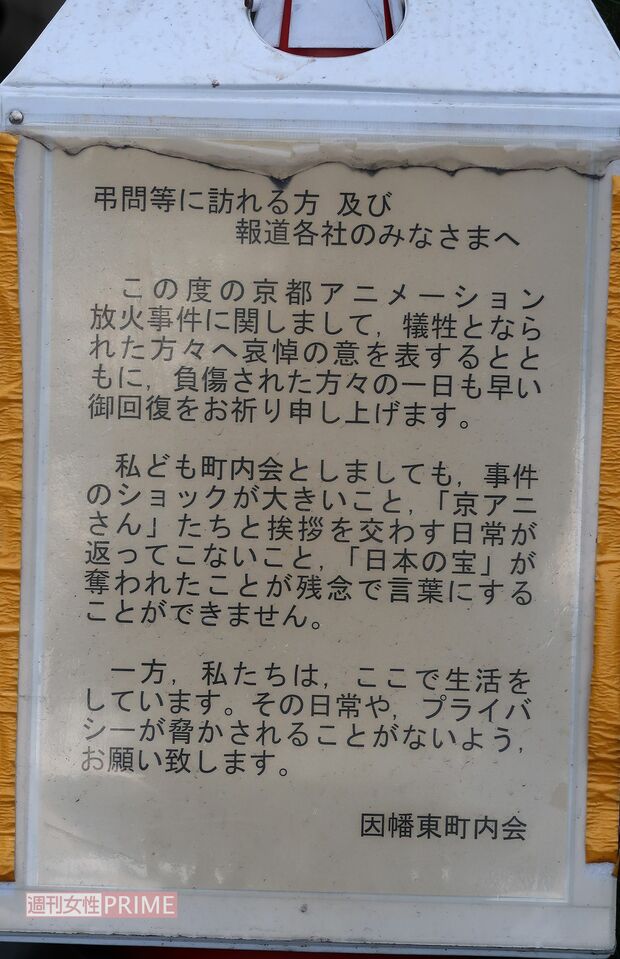 弔問等に訪れる方 及び
報道各社のみなさまへ
この度の京都アニメーション
放火事件に関しまして，犠牲となら
れた方々へ哀悼の意を表するとと
もに，負傷された方々の一日も早い
御回復をお祈り申し上げます。
私ども町内会としましても，事件
のショックが大きいこと，「京アニ
さん」たちと挨拶を交わす日常が
返ってこないこと，「日本の宝」が
奪われたことが残念で言葉にする
ことができません。
一方，私たちは，ここで生活を
しています。その日常や，プライバ
シーが脅かされることがないよう，
お願い致します。
因幡東町内会
週刊女性PRIME